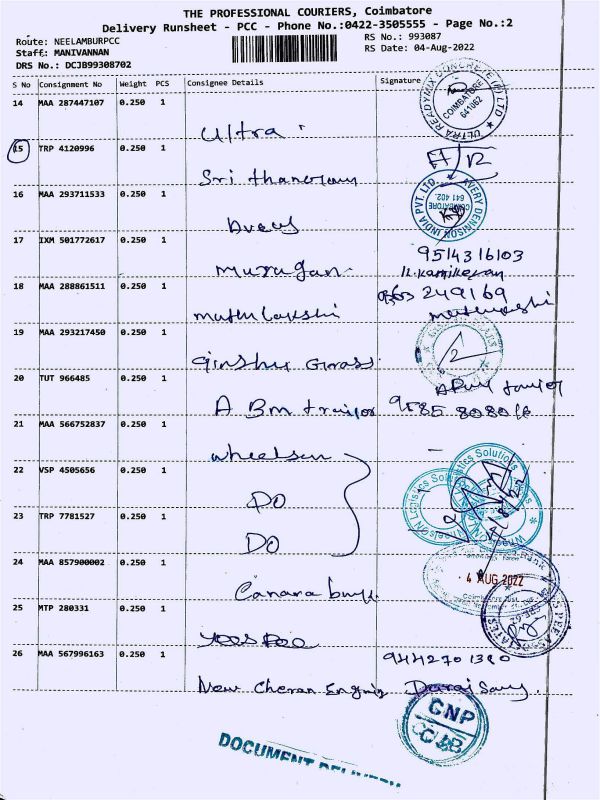 THE PROFESSIONAL COURIERS, Coimbatore
Delivery Runsheet - PCC - Phone No.:0422-3505555 - Page No.:2
Route: NEELAMBURPCC
RS No.: 993087
Staff: MANIVANNAN
RS Date: 04-Aug-2022
DRS No.: DCJB99308702
S No Consignment No Weight PCS Consignee Details Signature
14 MAA 287447107 0.250 1
ULTRA READYMIX CONCRETE (P) LTD
COIMBATORE
641062
Ultra
15 TRP 4120996 0.250 1
Sri
16 MAA 293711533 0.250 1
AVERY DENNISON INDIA PVT. LTD.
COIMBATORE
641 402.
17 IXM 501772617 0.250 1
9514316103
Murugan
18 MAA 288861511 0.250 1
249169
19 MAA 293217450 0.250 1
20 TUT 966485 0.250 1
A Bm trailor
21 MAA 566752837 0.250 1
wheelson
22 VSP 4505656 0.250 1
Wheelson Logistics Solutions
DO
23 TRP 7781527 0.250 1
DO
24 MAA 857900002 0.250 1
4 AUG 2022
Canara bank
25 MTP 280331 0.250 1
26 MAA 567996163 0.250 1
9442701380
New Cheran Engnis Doraisamy
GNP
CJB
DOCUMENT DELIVERY